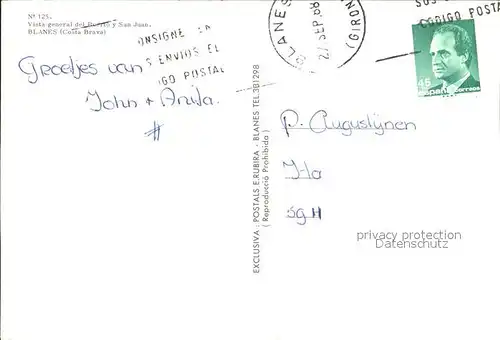 Nº 125.
Vista general del Puerto y San Juan.
BLANES (Costa Brava)
Groetjes van
John + Anita.
#
CONSIGNE EN
SUS ENVIOS EL
CODIGO POSTAL
BLANES
27 SEP
(GIRONA)
CODIGO POSTA
45
España correos
EXCLUSIVA : POSTALS E. RUBIRA - BLANES TEL. 331298
( Reproducció Prohibida )
P. Augustijnen
SGH
privacy protection
Datenschutz